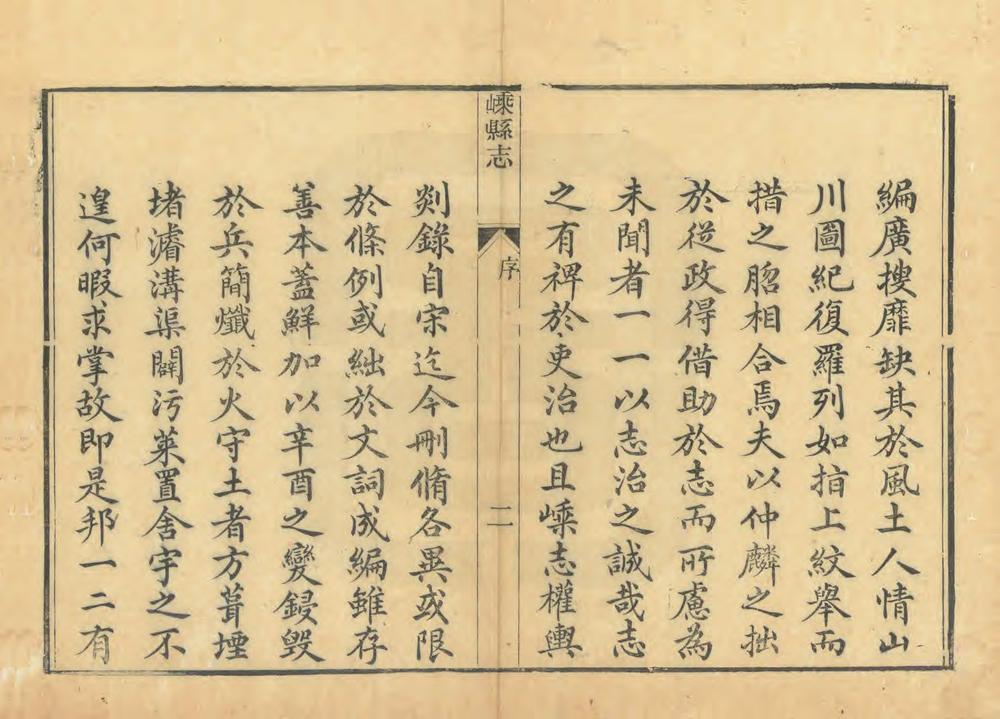 編廣搜靡缺其於風土人情山
川圖紀復羅列如指上紋舉而
措之脗相合焉夫以仲麟之拙
於從政得借助於志而所慮為
未聞者一一以志治之誠哉志
之有裨於吏治也且嵊志權輿
嵊縣志
序
二
剡錄自宋迄今刪脩各異或限
於條例或絀於文詞成編雖存
善本蓋鮮加以辛酉之變鋟毀
於兵簡殱於火守土者方葺堙
堵濬溝渠闢污萊置舍宇之不
遑何暇求掌故即是邦一二有